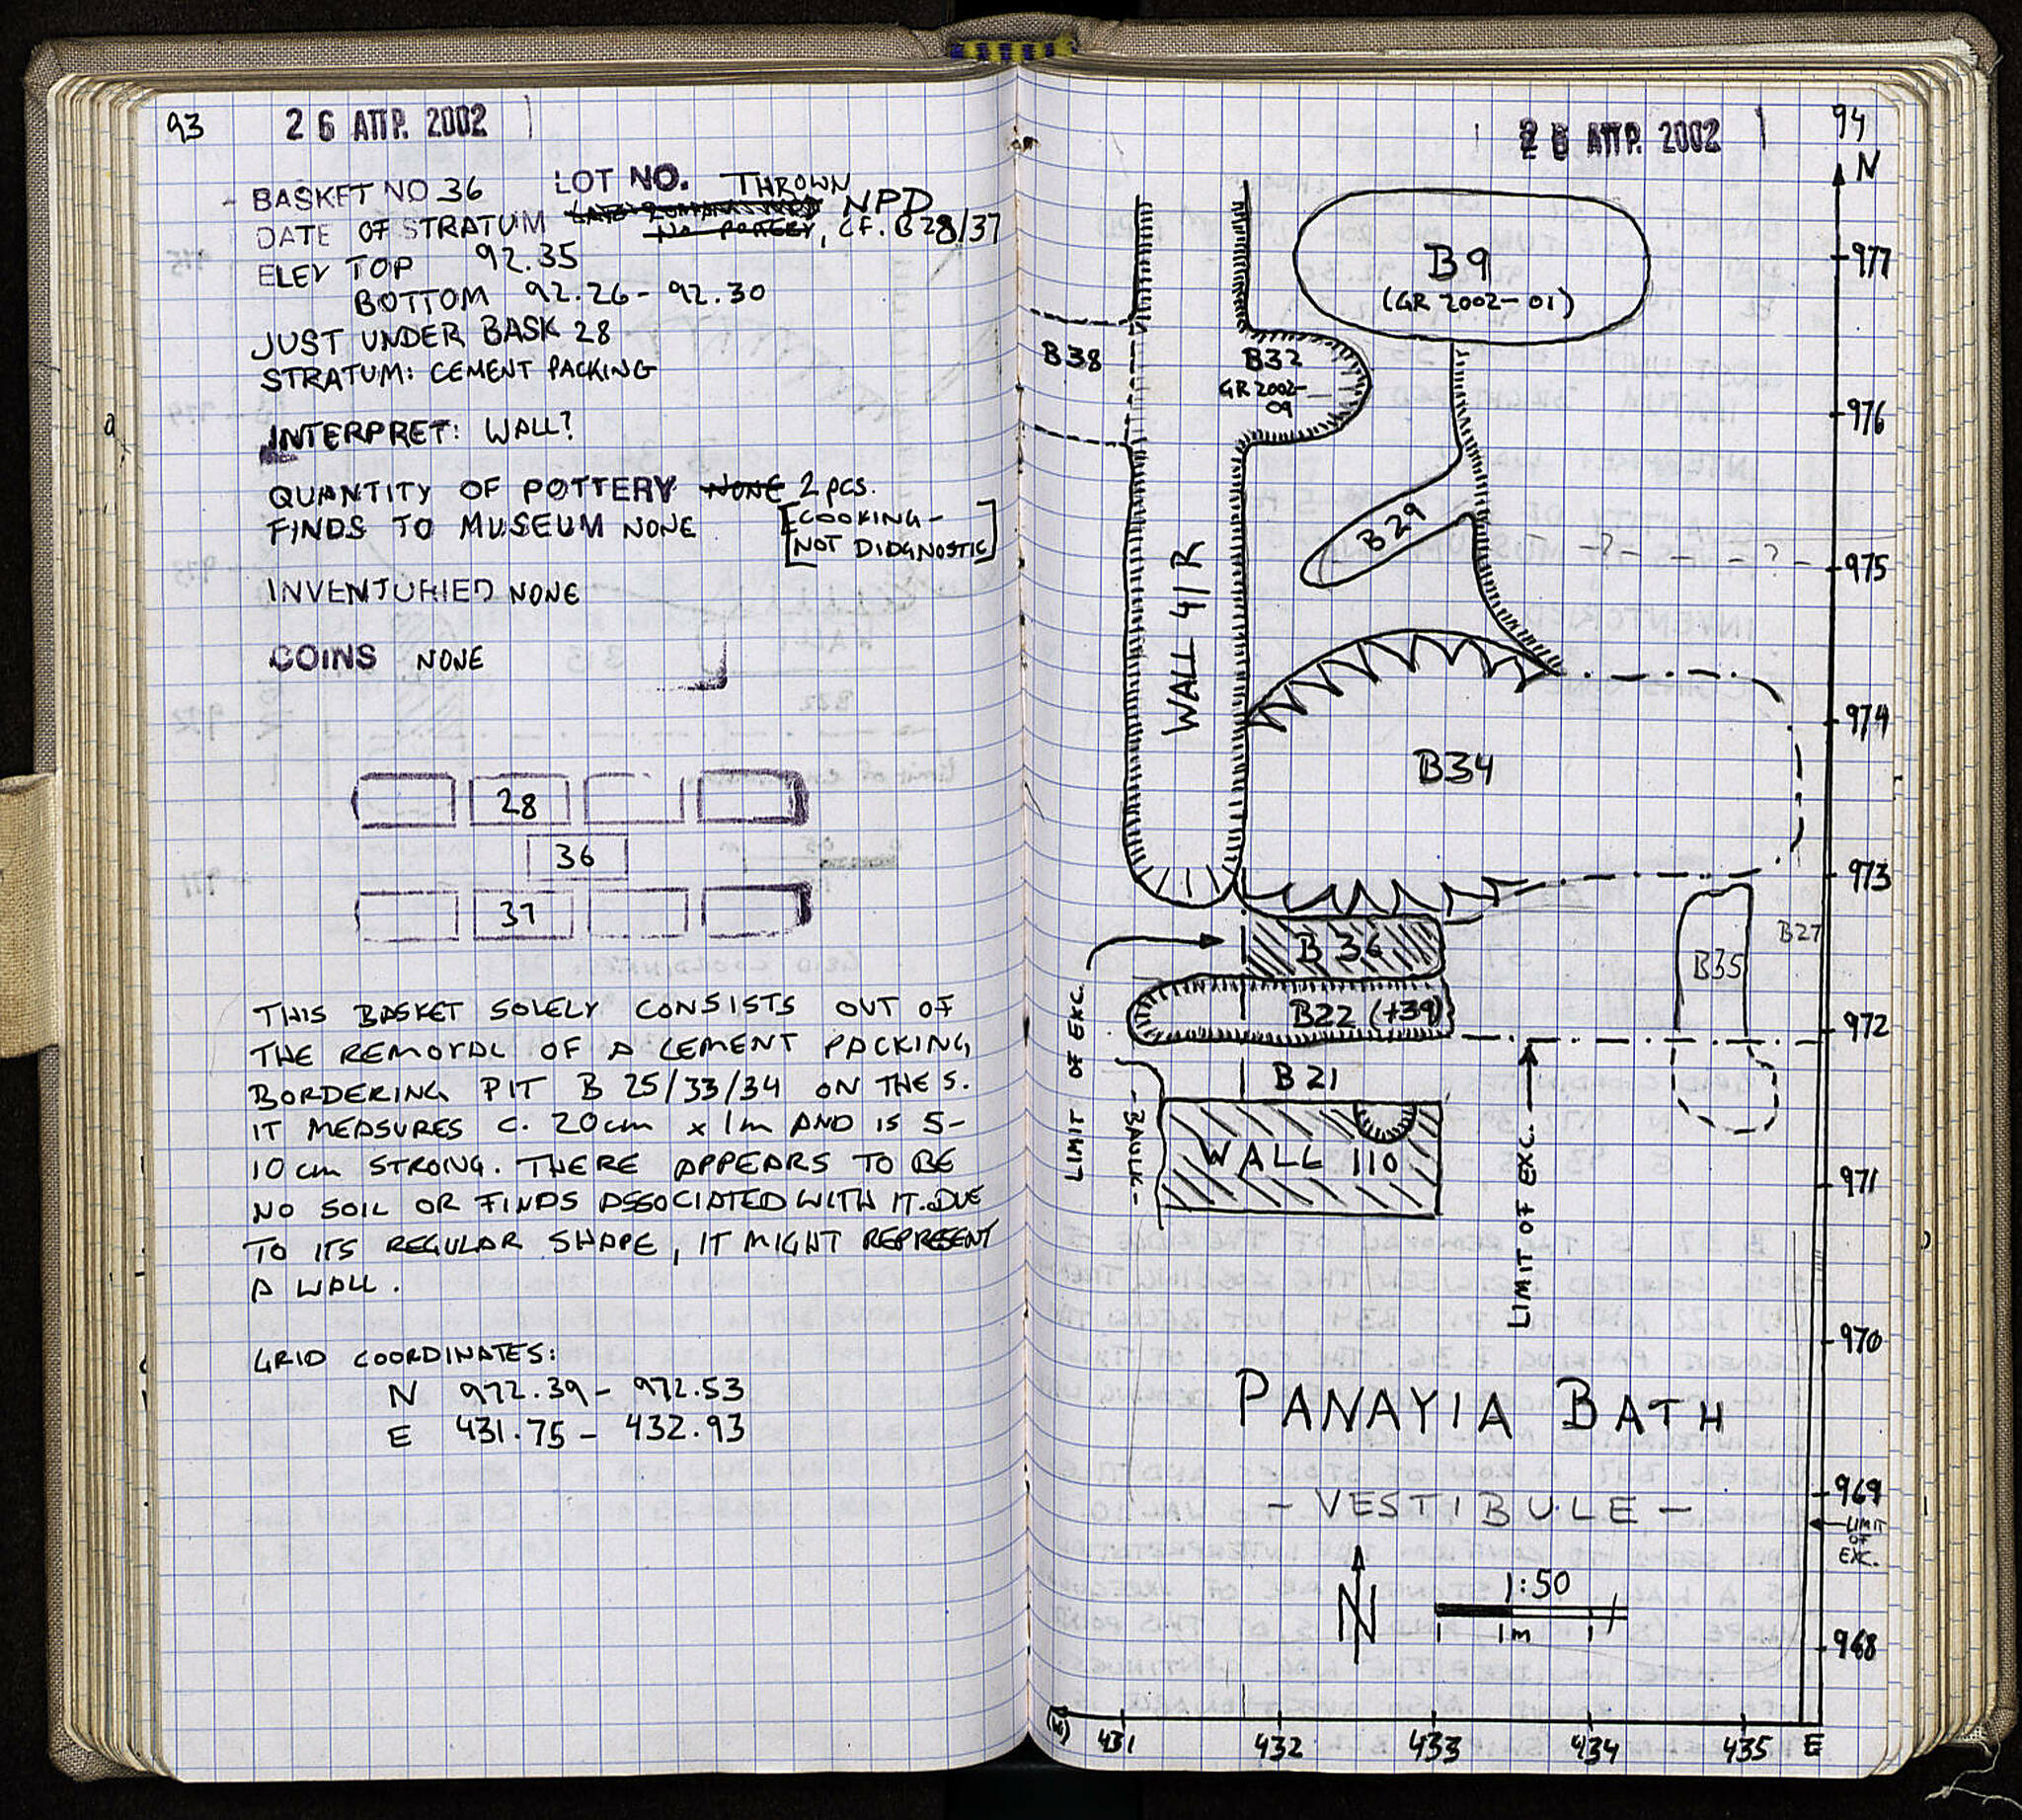 93
26 ΑΠΡ. 2002
BASKET NO 36 LOT NO. THROWN
DATE OF STRATUM NPD
NO POTTERY, CF. B28/37
ELEV TOP 92.35
BOTTOM 92.26 - 92.30
JUST UNDER BASK 28
STRATUM: CEMENT PACKING
INTERPRET: WALL?
QUANTITY OF POTTERY NONE 2 pcs.
FINDS TO MUSEUM NONE [COOKING-
NOT DIAGNOSTIC]
INVENTORIED NONE
COINS NONE
28
36
37
THIS BASKET SOLELY CONSISTS OUT OF
THE REMOVAL OF A CEMENT PACKING
BORDERING PIT B 25/33/34 ON THE S.
IT MEASURES C. 20cm x 1m AND IS 5-
10cm STRONG. THERE APPEARS TO BE
NO SOIL OR FINDS ASSOCIATED WITH IT. DUE
TO ITS REGULAR SHAPE, IT MIGHT REPRESENT
A WALL.
GRID COORDINATES:
N 972.39 - 972.53
E 431.75 - 432.93
26 ΑΠΡ. 2002
94
N
977
B9
(GR 2002-01)
B38
B32
GR 2002-
09
976
B29
- ? - - - ? -
975
WALL 41R
974
B34
973
B 36
B27
B35
B22 (+39)
972
LIMIT OF EXC.
B 21
- BAULK -
WALL 110
971
LIMIT OF EXC.
970
PANAYIA BATH
- VESTIBULE -
969
LIMIT
OF
EXC.
N
1:50
1m
968
(W) 431 432 433 434 435 E